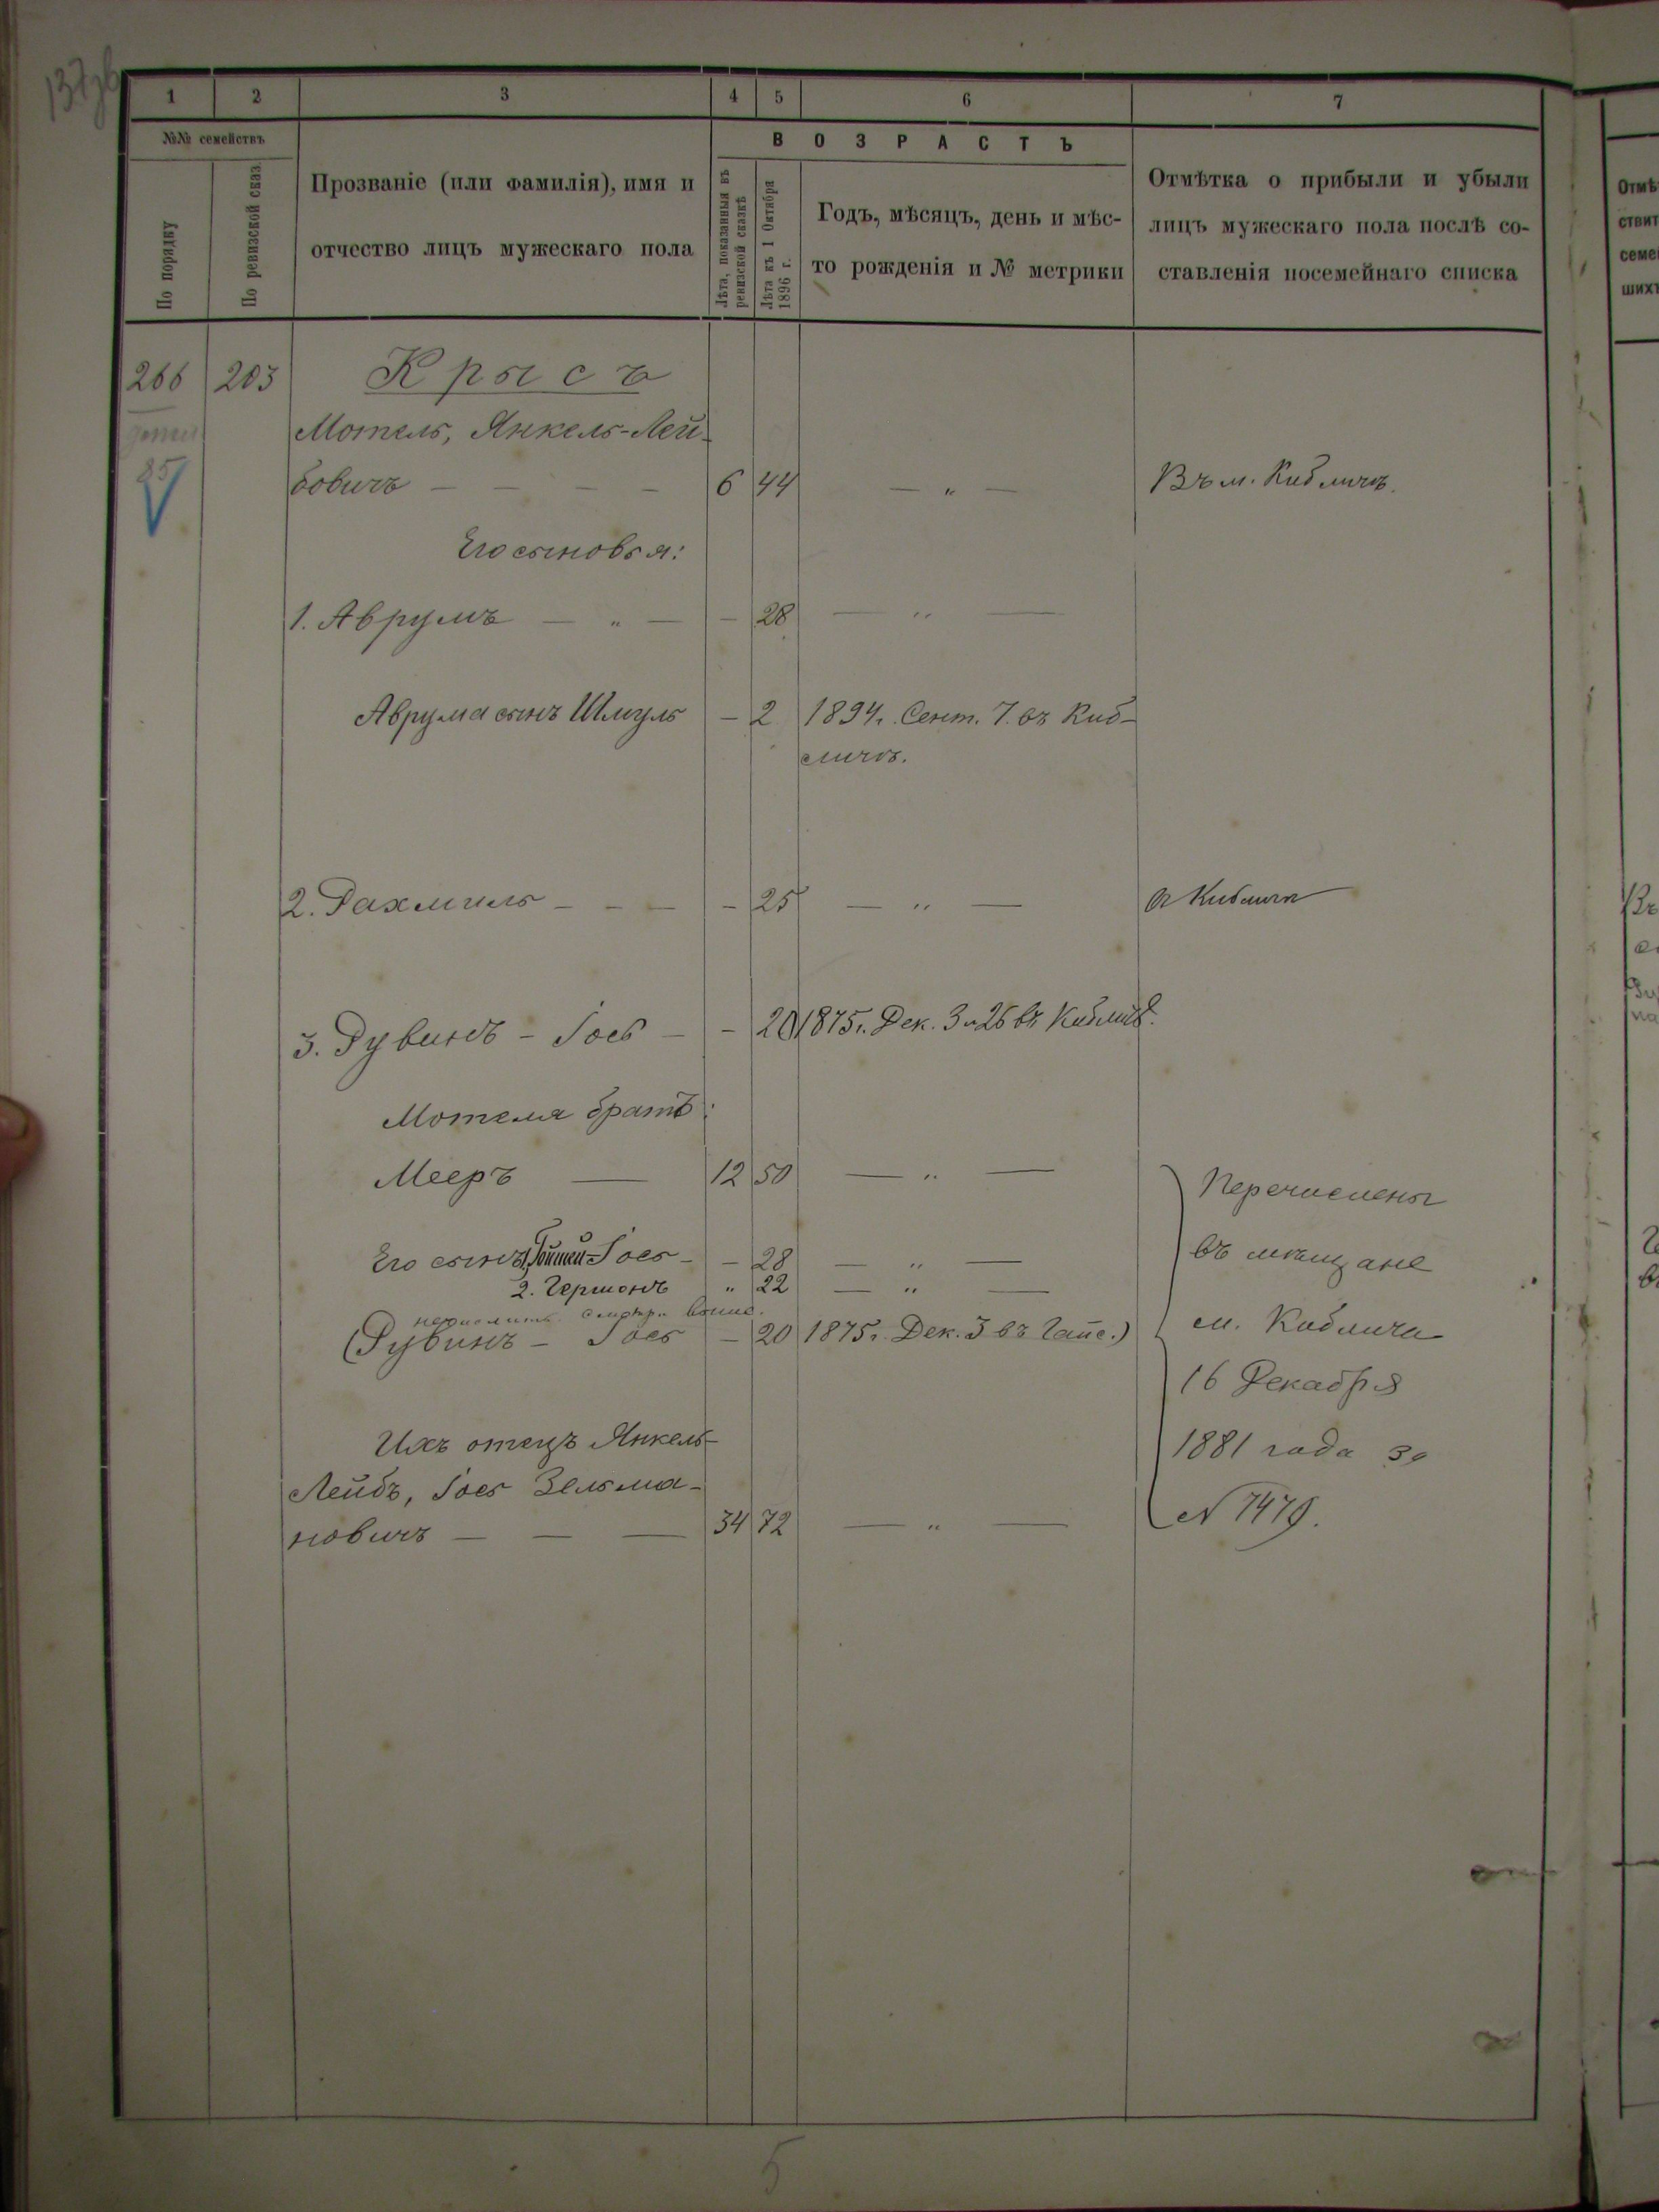 137об
1 2 3 4 5 6 7
№№ семействъ
По порядку
По ревизской сказ
Прозваніе (или фамилія), имя и
отчество лицъ мужескаго пола
ВОЗРАСТЪ
Лѣта, показанныя въ
ревизской сказкѣ
Лѣта къ 1 Октября
1896 г.
Годъ, мѣсяцъ, день и мѣс-
то рожденія и № метрики
Отмѣтка о прибыли и убыли
лицъ мужескаго пола послѣ со-
ставленія посемейнаго списка
266 203 Крысъ
Мотель, Янкель-Лей-
85
бовичъ — — — — 6 44 — „ — Въ м. Кибличѣ.
Его сыновья:
1. Аврумъ — „ — - 28 — „ —
Аврума сынъ Шмуль - 2 1894 г. Сент. 7. въ Киб-
личѣ.
2. Рахмиль - - - - 25 — „ — в Кибличѣ
3. Рувинъ - Іось - - 20 1875 г. Дек. 3 №26 въ Киблич.
Мотеля братъ:
Мееръ — 12 50 — „ —
Его сынъ 1. Іось - - 28 — „ —
2. Гершонъ „ 22 — „ —
смотри выше.
(Рувинъ - Іось - 20 1875 г. Дек. 3 въ Гайс.)
Перечислены
въ мѣщане
м. Киблича
16 Декабря
1881 года за
№ 7479.
Ихъ отецъ Янкель-
Лейбъ, Іось Зельма-
новичъ — — — 34 72 — „ —
5
Отмѣ
ствит
семе
шихъ